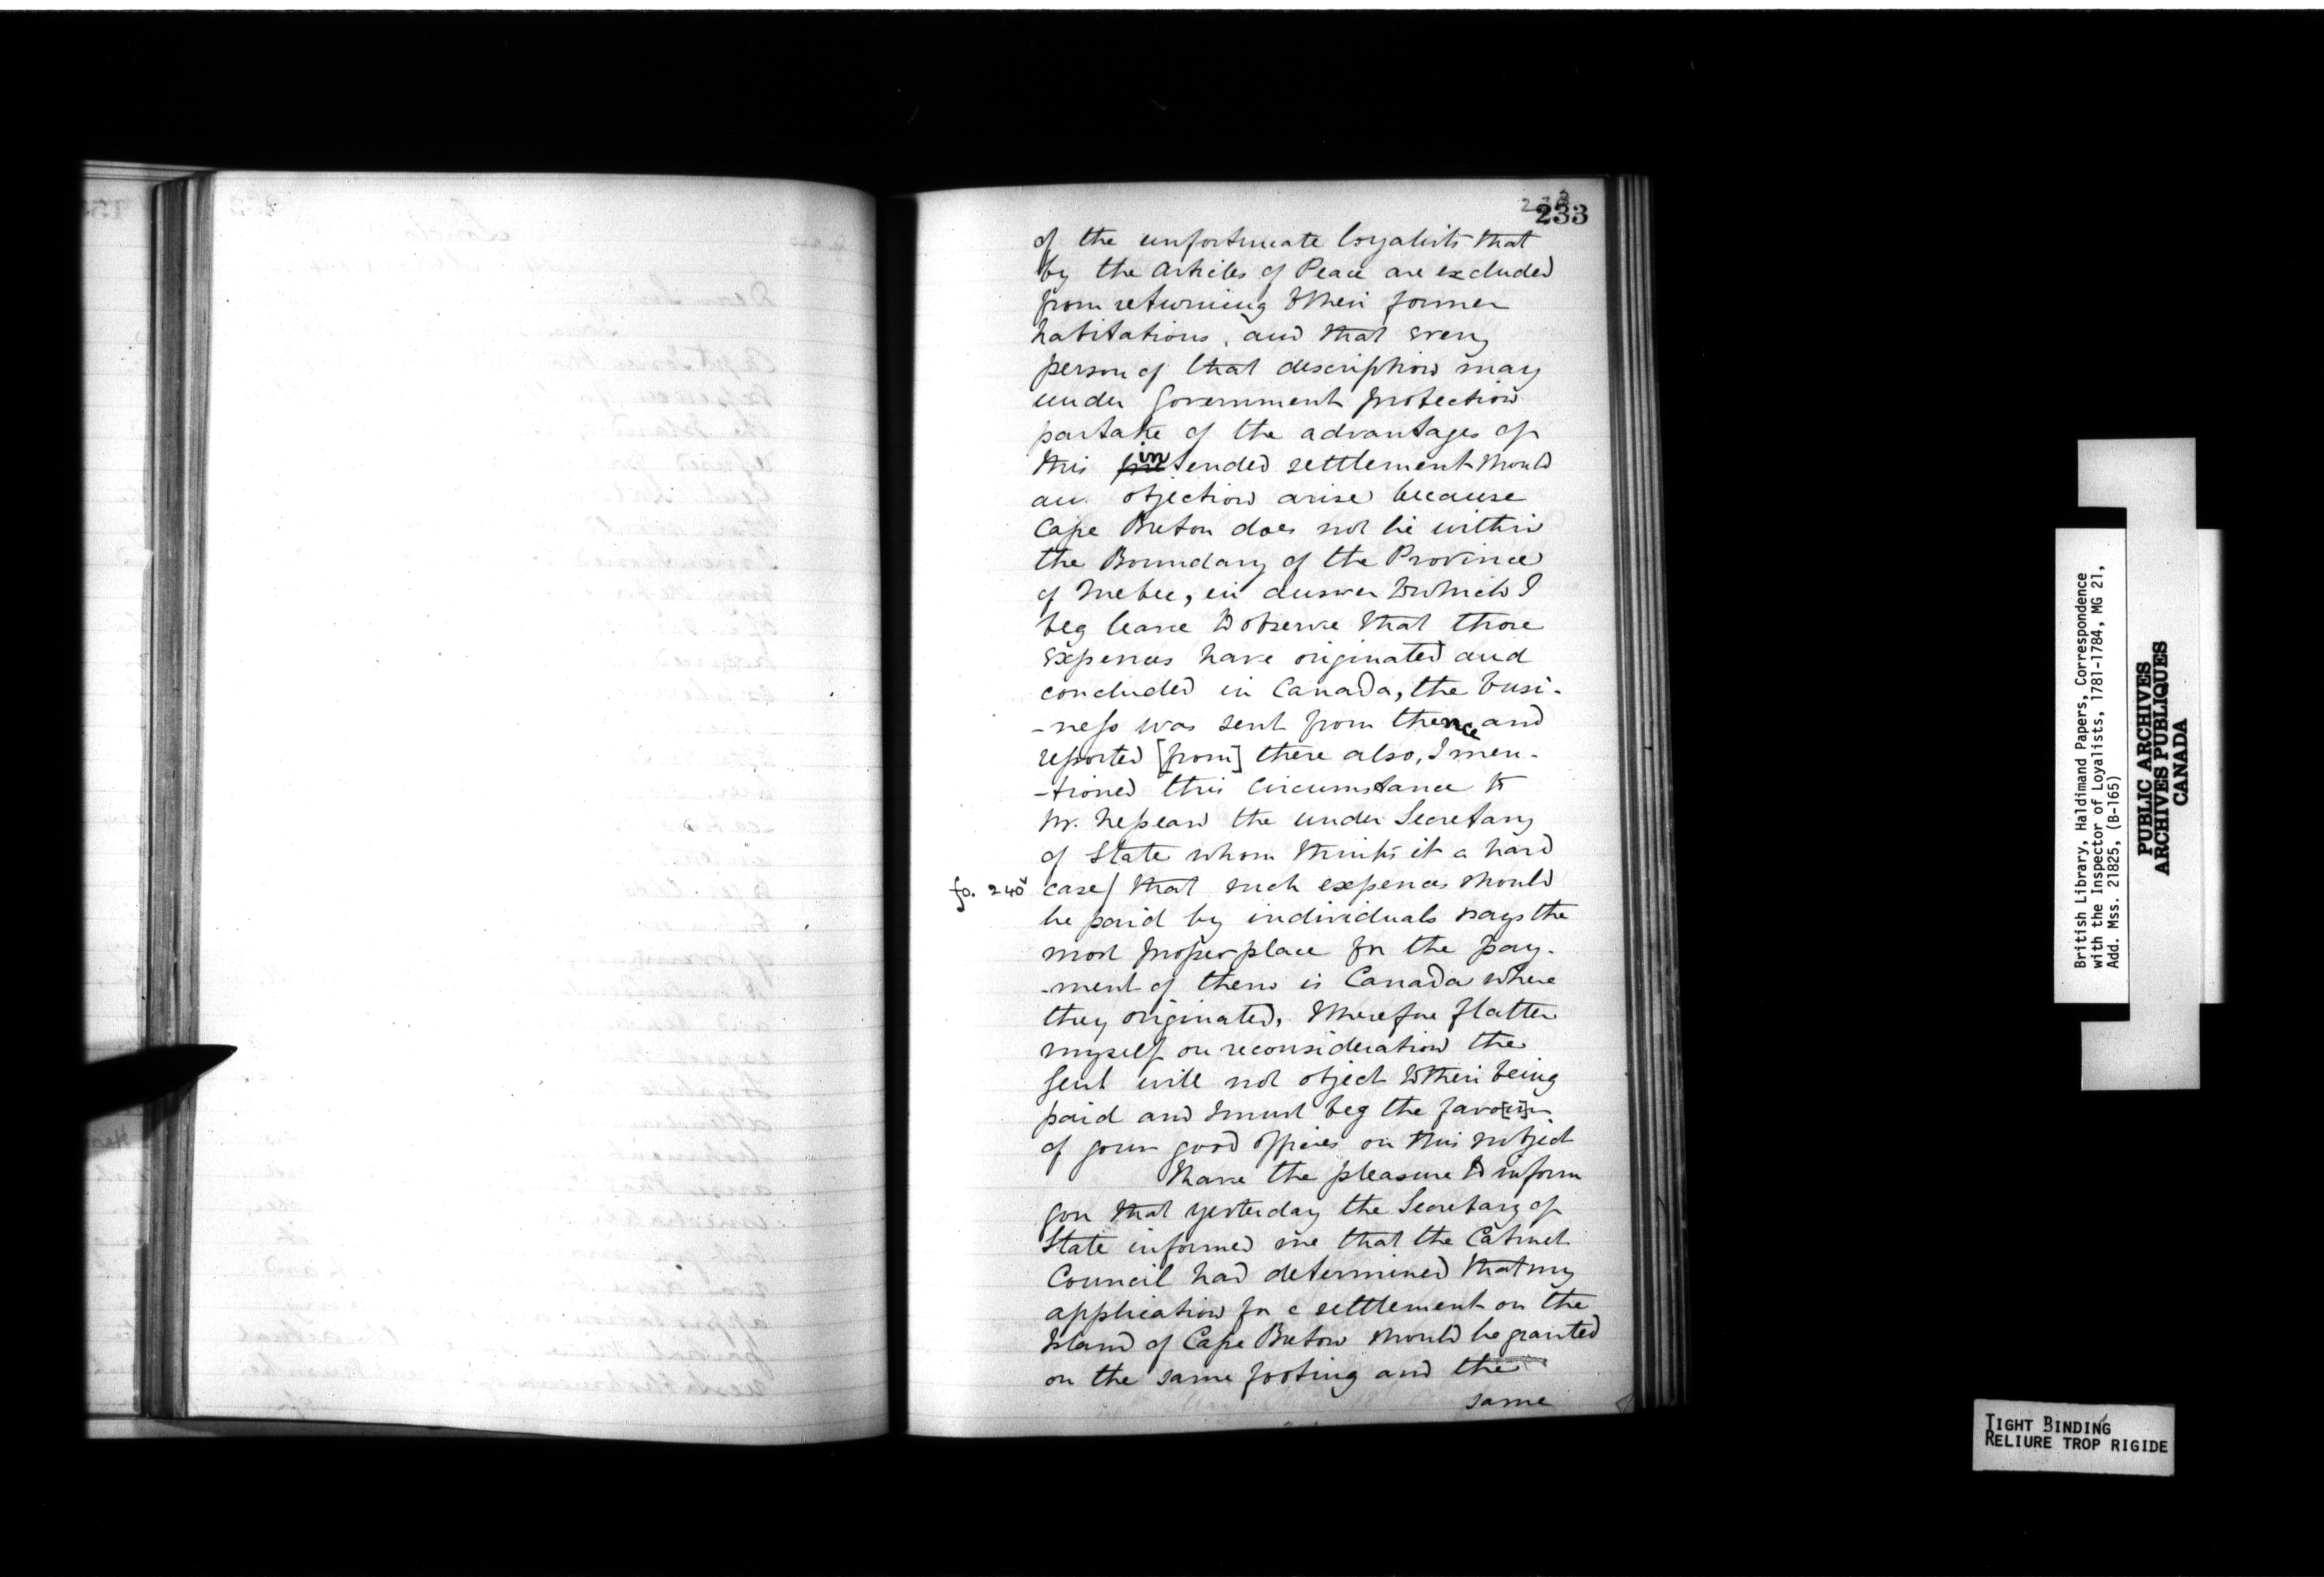 233
of the unfortunate loyalists that
by the Articles of Peace are excluded
from returning to their former
habitations, and that every
person of that description may
under Government protection
partake of the advantages of
this intended settlement should
an objection arise because
Cape Breton does not lie within
the Boundary of the Province
of Quebec, in answer to which I
beg leave to observe that those
expences have originated and
concluded in Canada, the busi-
-ness was sent from thence and
reported [from] there also, I men-
-tioned this circumstance to
Mr. Nepean the under Secretary
of State whom thinks it a hard
fo. 240v case/ that such expences should
be paid by individuals says the
most proper place for the pay-
-ment of them is Canada where
they originated, therefore flatter
myself on reconsideration the
Genl will not object to their being
paid and I must beg the favo[u]r
of your good offices on this subject
I have the pleasure to inform
you that yesterday the Secretary of
State informed me that the Cabinet
Council had determined that my
application for a settlement on the
Island of Cape Breton should be granted
on the same footing and the
same
British Library, Haldimand Papers, Correspondence
with the Inspector of Loyalists, 1781-1784, MG 21,
Add. Mss. 21825, (B-165)
PUBLIC ARCHIVES
ARCHIVES PUBLIQUES
CANADA
TIGHT BINDING
RELIURE TROP RIGIDE